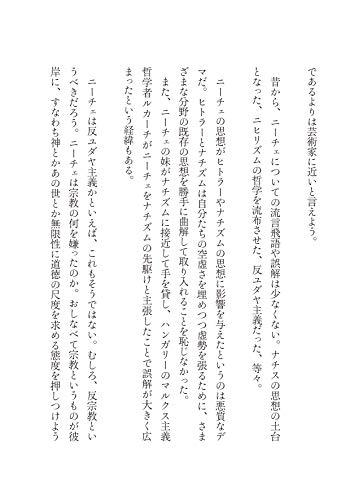 であるよりは芸術家に近いと言えよう。
昔から、ニーチェについての流言飛語や誤解は少なくない。ナチスの思想の土台
となった、ニヒリズムの哲学を流布させた、反ユダヤ主義だった、等々。
ニーチェの思想がヒトラーやナチズムの思想に影響を与えたというのは悪質なデ
マだ。ヒトラーとナチズムは自分たちの空虚さを埋めつつ虚勢を張るために、さま
ざまな分野の既存の思想を勝手に曲解して取り入れることを恥じなかった。
また、ニーチェの妹がナチズムに接近して手を貸し、ハンガリーのマルクス主義
哲学者ルカーチがニーチェをナチズムの先駆けと主張したことで誤解が大きく広
まったという経緯もある。
ニーチェは反ユダヤ主義かといえば、これもそうではない。むしろ、反宗教とい
うべきだろう。ニーチェは宗教の何を嫌ったのか。おしなべて宗教というものが彼
岸に、すなわち神とかあの世とか無限性に道徳の尺度を求める態度を押しつけよう